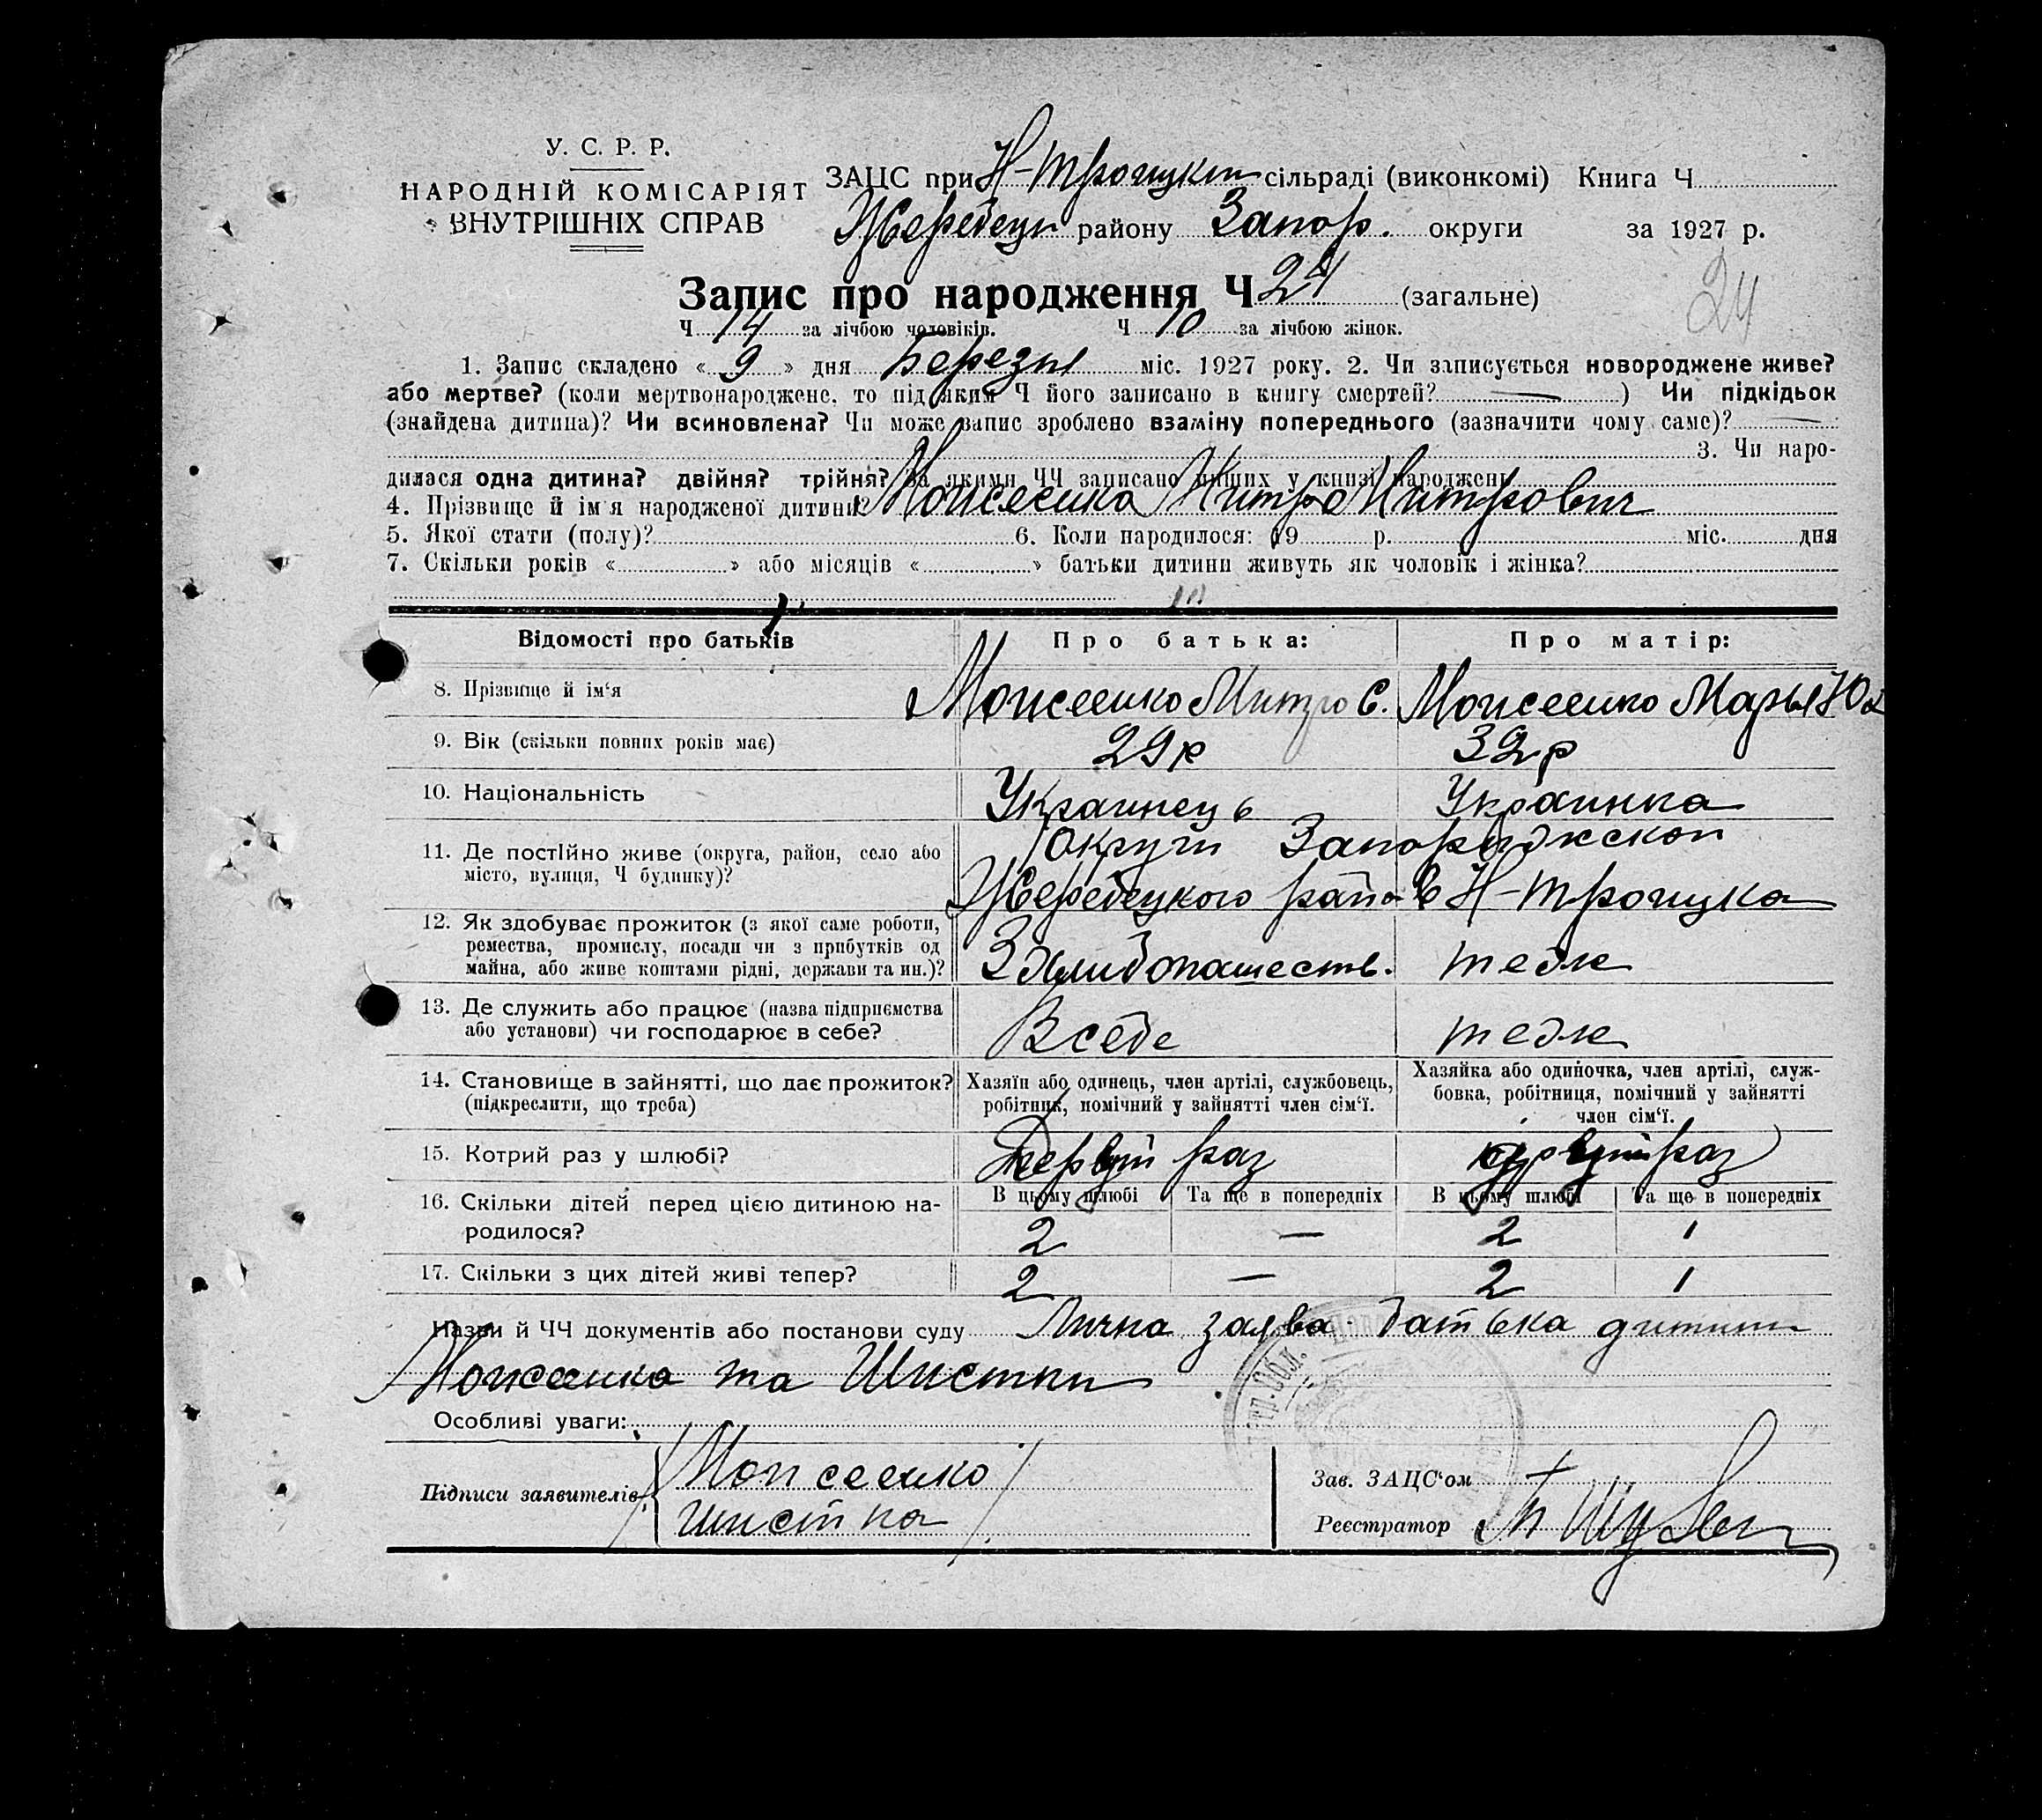 У. С. Р. Р.
НАРОДНІЙ КОМІСАРІЯТ
ВНУТРІШНІХ СПРАВ
ЗАЦС при Н-Троицкт сільраді (виконкомі) Книга Ч
Жеребецк району Запор. округи за 1927 р.
Запис про народження Ч 24 (загальне)
24
Ч 14 за лічбою чоловіків. Ч 10 за лічбою жінок.
1. Запис складено « 9 » дня Березня міс. 1927 року. 2. Чи записується новороджене живе?
або мертве? (коли мертвонароджене, то під яким Ч його записано в книгу смертей? — ) Чи підкідьок
(знайдена дитина)? Чи всиновлена? Чи може запис зроблено взаміну попереднього (зазначити чому саме)? —
3. Чи наро-
дилася одна дитина? двійня? трійня? За якими ЧЧ записано инших у книзі народжень
4. Прізвище й ім'я народженої дитини? Моисеенко Митро Митрович
5. Якої стати (полу)? 6. Коли народилося: 19 р. міс. дня
7. Скільки років « » або місяців « » батьки дитини живуть як чоловік і жінка?
Відомості про батьків Про батька: Про матір:
8. Прізвище й ім'я Моисеенко Митро С. Моисеенко Марья
9. Вік (скільки повних років має) 29 р 32 р
10. Національність Украинець Украинка
11. Де постійно живе (округа, район, село або Округи Запорижскои
місто, вулиця, Ч будинку)? Жеребецкого район с Н-Троицка
12. Як здобуває прожиток (з якої саме роботи,
ремества, промислу, посади чи з прибутків од
майна, або живе коштами рідні, держави та ин.)? З хлибопашеств. теж
13. Де служить або працює (назва підприємства
або установи) чи господарює в себе? В себе теж
14. Становище в зайнятті, що дає прожиток? Хазяїн або одинець, член артілі, службовець, Хазяйка або одиночка, член артілі, служ-
(підкреслити, що треба) робітник, помічний у зайнятті член сім'ї. бовка, робітниця, помічний у зайнятті
член сім'ї.
15. Котрий раз у шлюбі? Первий раз раз
16. Скільки дітей перед цією дитиною на- В цьому шлюбі Та ще в попередніх В цьому шлюбі Та ще в попередніх
родилося? 2 — 2 1
17. Скільки з цих дітей живі тепер? 2 — 2 1
Назви й ЧЧ документів або постанови суду Лична заява батька дитини
Моисеенка та Шистки
Особливі уваги:
Підписи заявителів Моисеенко
Шистка
Зав. ЗАЦС'ом
Реєстратор